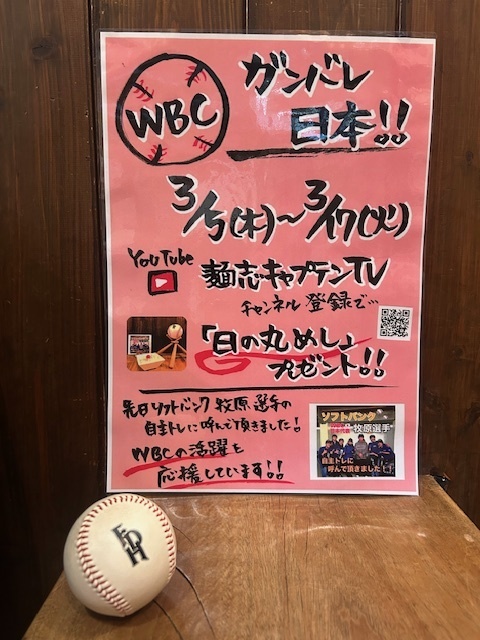 WBC
ガンバレ
日本!!
3/5(木)〜3/17(火)
YouTube
麺志キャプテンTV
チャンネル登録で…
「日の丸めし」
プレゼント!!
先日ソフトバンク牧原選手の
自主トレに呼んで頂きました!
WBCの活躍を
応援しています!!
ソフトバンク
牧原選手
自主トレに
呼んで頂きました!